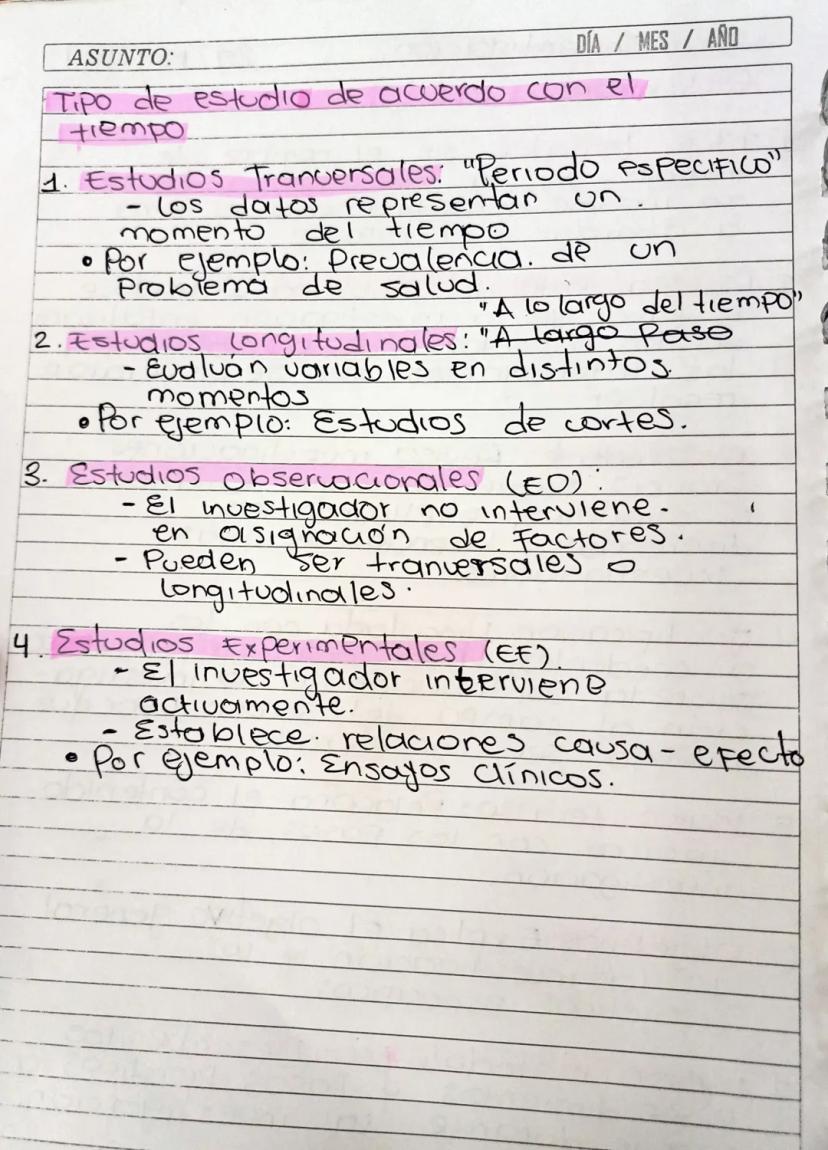 ASUNTO:
DÍA / MES / AÑO
Tipo de estudio de acuerdo con el
tiempo
1. Estudios Tranversales: "Periodo especifico"
- Los datos representan un.
momento del tiempo
• Por ejemplo: Prevalencia. de un
problema de salud.
"A lo largo del tiempo"
2. Estudios Longitudinales: "A largo Paso
- Evaluán variables en distintos.
momentos
• Por ejemplo: Estudios de cortes.
3. Estudios observacionales (EO):
- El investigador no interviene.
en asignación de factores.
- Pueden ser tranversales o
longitudinales.
4. Estudios Experimentales (EE).
- El investigador interviene
activamente.
- Establece. relaciones causa - efecto
• Por ejemplo: Ensayos clínicos.